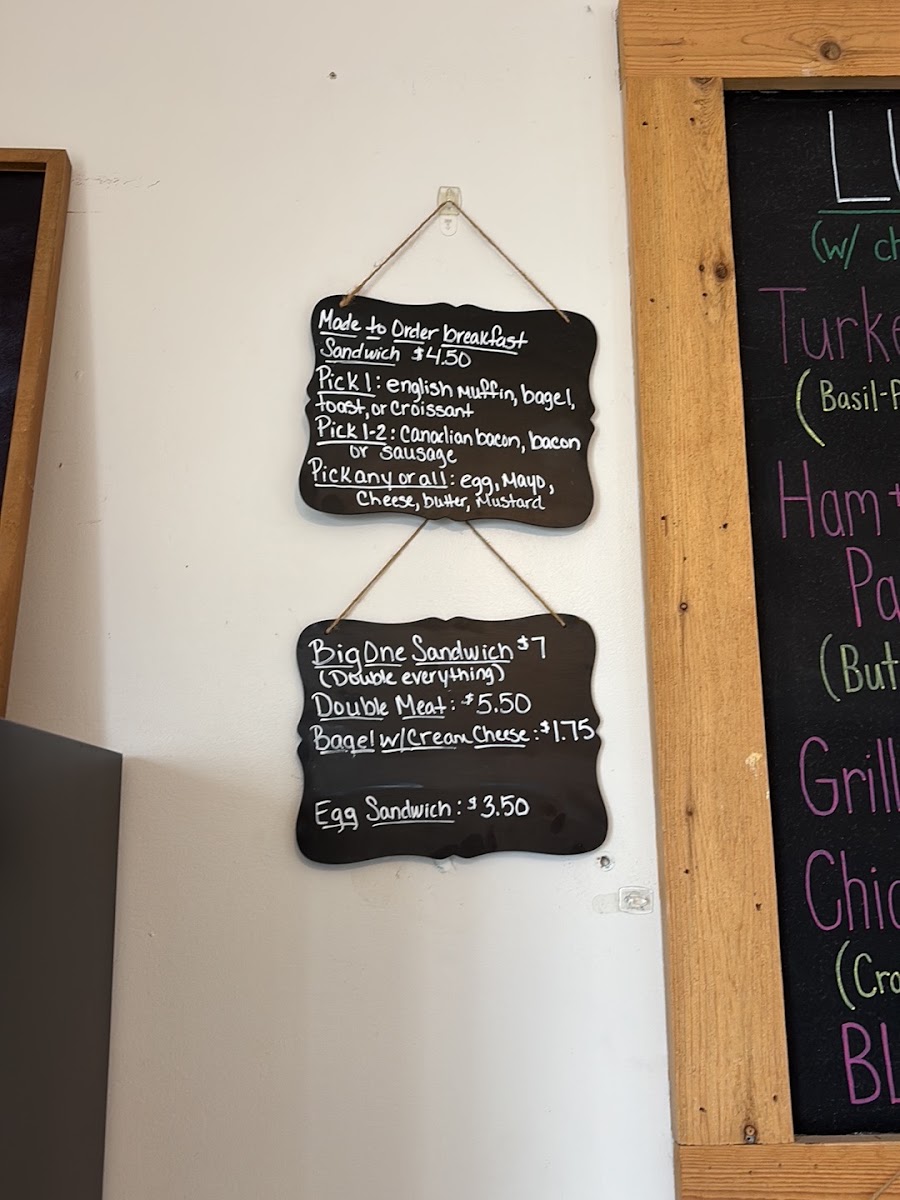 Made to Order breakfast
Sandwich $4.50
Pick 1: english Muffin, bagel,
toast, or croissant
Pick 1-2: Canadian bacon, bacon
or sausage
Pick any or all: egg, Mayo,
Cheese, butter, Mustard
Big One Sandwich $7
(Double everything)
Double Meat: $5.50
Bagel w/Cream Cheese: $1.75
Egg Sandwich: $3.50
(w/
Turke
(Basil-
Ham
Pa
(But
Grill
Chic
(Cro
BL